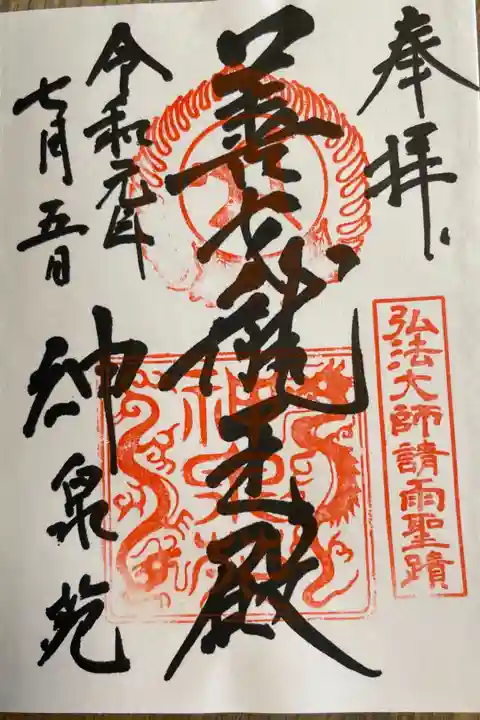 奉拝
弘法大師請雨聖蹟
善女龍王殿
令和元年
七月五日
神泉苑